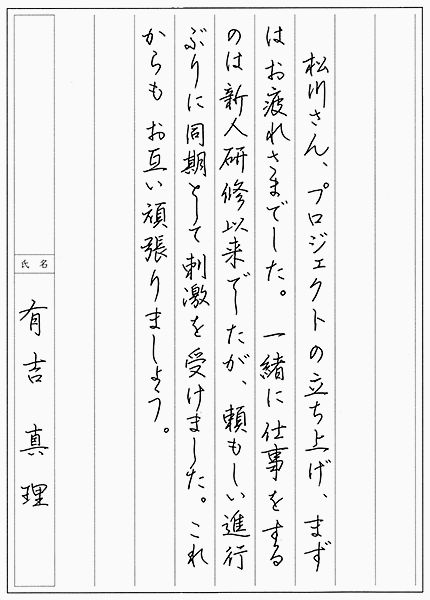 松川さん、プロジェクトの立ち上げ、まず
はお疲れさまでした。一緒に仕事をする
のは新人研修以来でしたが、頼もしい進行
ぶりに同期として刺激を受けました。これ
からもお互い頑張りましょう。
氏名
有吉真理